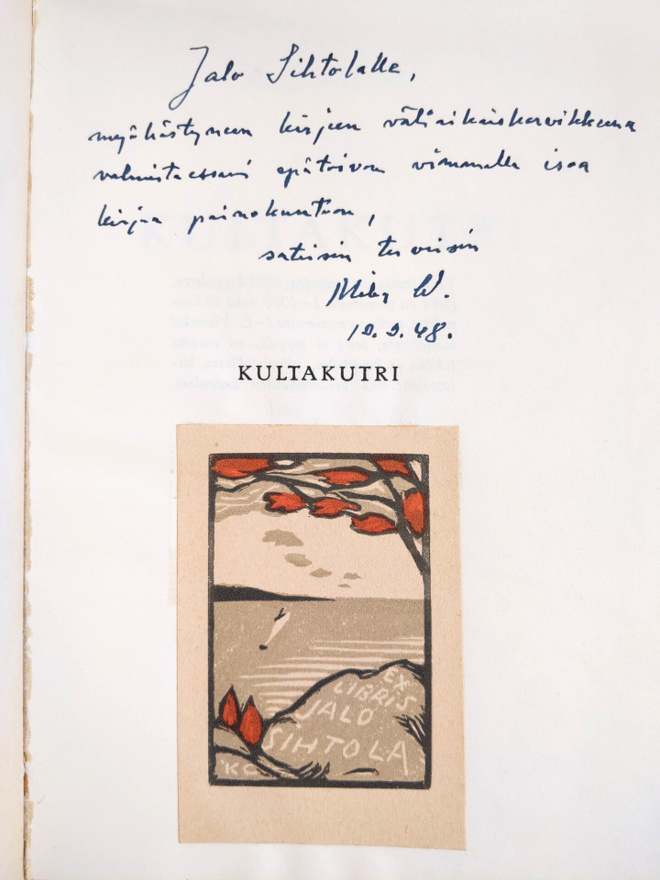 Jalo Sihtolalle,
myöhästyneen kirjeen väliaikaiskorvikkeena
valmistaessani epätoivon vimmalla isoa
kirjaa painokuntoon,
satiisin terveisin
W.
10.9.48.
KULTAKUTRI
EX
LIBRIS
JALO
SIHTOLA
KC